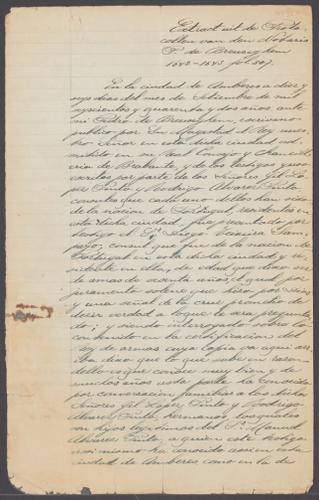 Extract uit de Proto-
collen van den Notaris
P. de Breuseghem
1642-1645 fol 307.
En la ciudad de Amberes a diez y
seys dias del mes de Setiembre de mil
seyscientos y quarenta y dos años, ante
mi Pedro de Breuseghem, escrivano
publico por Su Magestad el Rey nues-
tro Señor en esta dicha ciudad ad-
mitido en su Real Consejo y Chancille-
ria de Brabante y de los testigos ynso-
escritos por parte de los Señores Gil Lo-
pez Pinto y Rodrigo Alvares Pinto
consules que cada uno dellos han sido
de la nacion de Portugal, residentes en
esta dicha ciudad, fue presentado por
testigo el Sr. Diego Teixeira Sam-
payo, consul que fue de la nacion de
Portugal en esta dicha ciudad y re-
sidente en ella, de edad que dixo ser
de mas de sesenta años, el qual por
juramento sobre que hizo por Dios
y una señal de la cruz prometio de
decir verdad a loque le sera pregunta-
do; y siendo interrogado sobre lo
contenido en la certificacion del
rey de armas cuya copia va aqui arri-
ba dixo que lo que sabe en razon
dello es que conoce muy bien y de
muchos años a esta parte ha conocido
por conversacion familiar a los dichos
Señores Gil Lopez Pinto y Rodrigo
Alvares Pinto, hermanos, los quales
son hijos legitimos del Sr. Manuel
Alvares Pinto, a quien este testigo
assi mismo ha conocido assi en esta
ciudad de Amberes como en la de